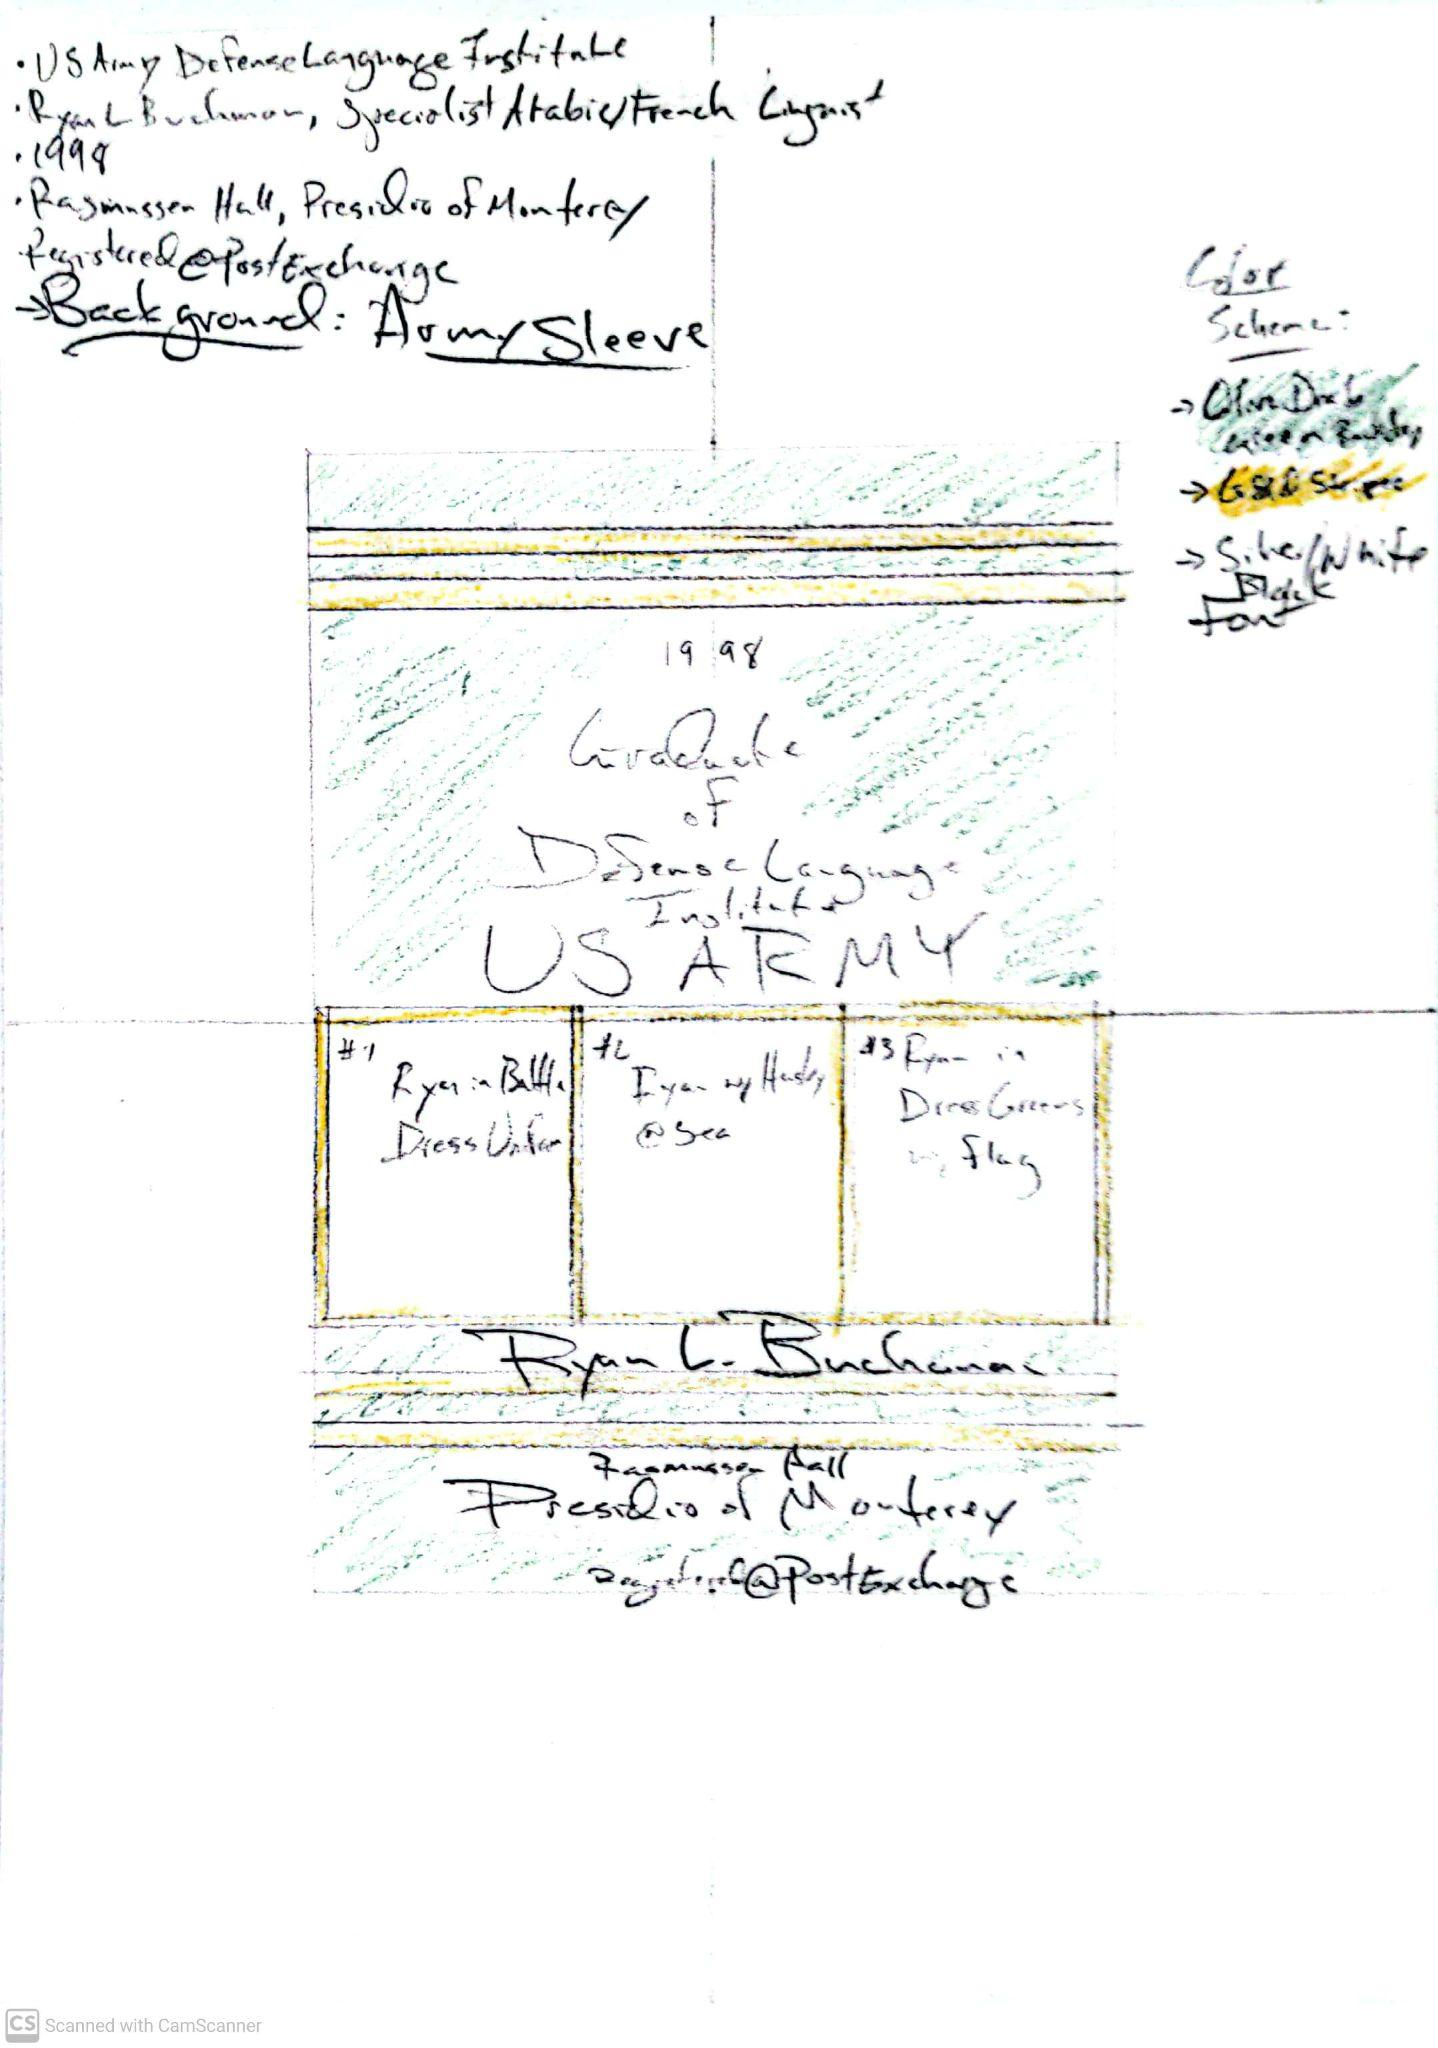 ·US Army Defense Language Institute
·Ryan L Buchanan, Specialist Arabic/French Linguist
·1998
·Rasmussen Hall, Presidio of Monterey
·Registered @ Post Exchange
→Background: Army Sleeve
Color
Scheme:
→ Olive Drab
Green
→ Gold Stripe
→ Silver/White
Black
Font
1998
Graduate
of
Defense Language
Institute
US ARMY
#1
Ryan in Battle
Dress Uniform
#2
Ryan w/ Husky
@ Sea
#3 Ryan in
Dress Greens
w/ Flag
Ryan L. Buchanan
Rasmussen Hall
Presidio of Monterey
Registered @ Post Exchange
CS Scanned with CamScanner